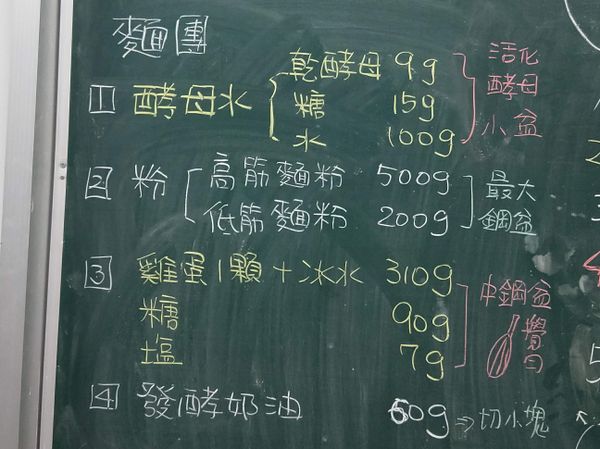 麵團
1 酵母水 乾酵母 9g 活化
糖 15g 酵母
水 100g 小盆
2 粉 高筋麵粉 500g 最大
低筋麵粉 200g 鋼盆
3 雞蛋1顆+冰水 310g 中鋼盆
糖 90g
塩 7g
4 發酵奶油 60g ⇒切小塊